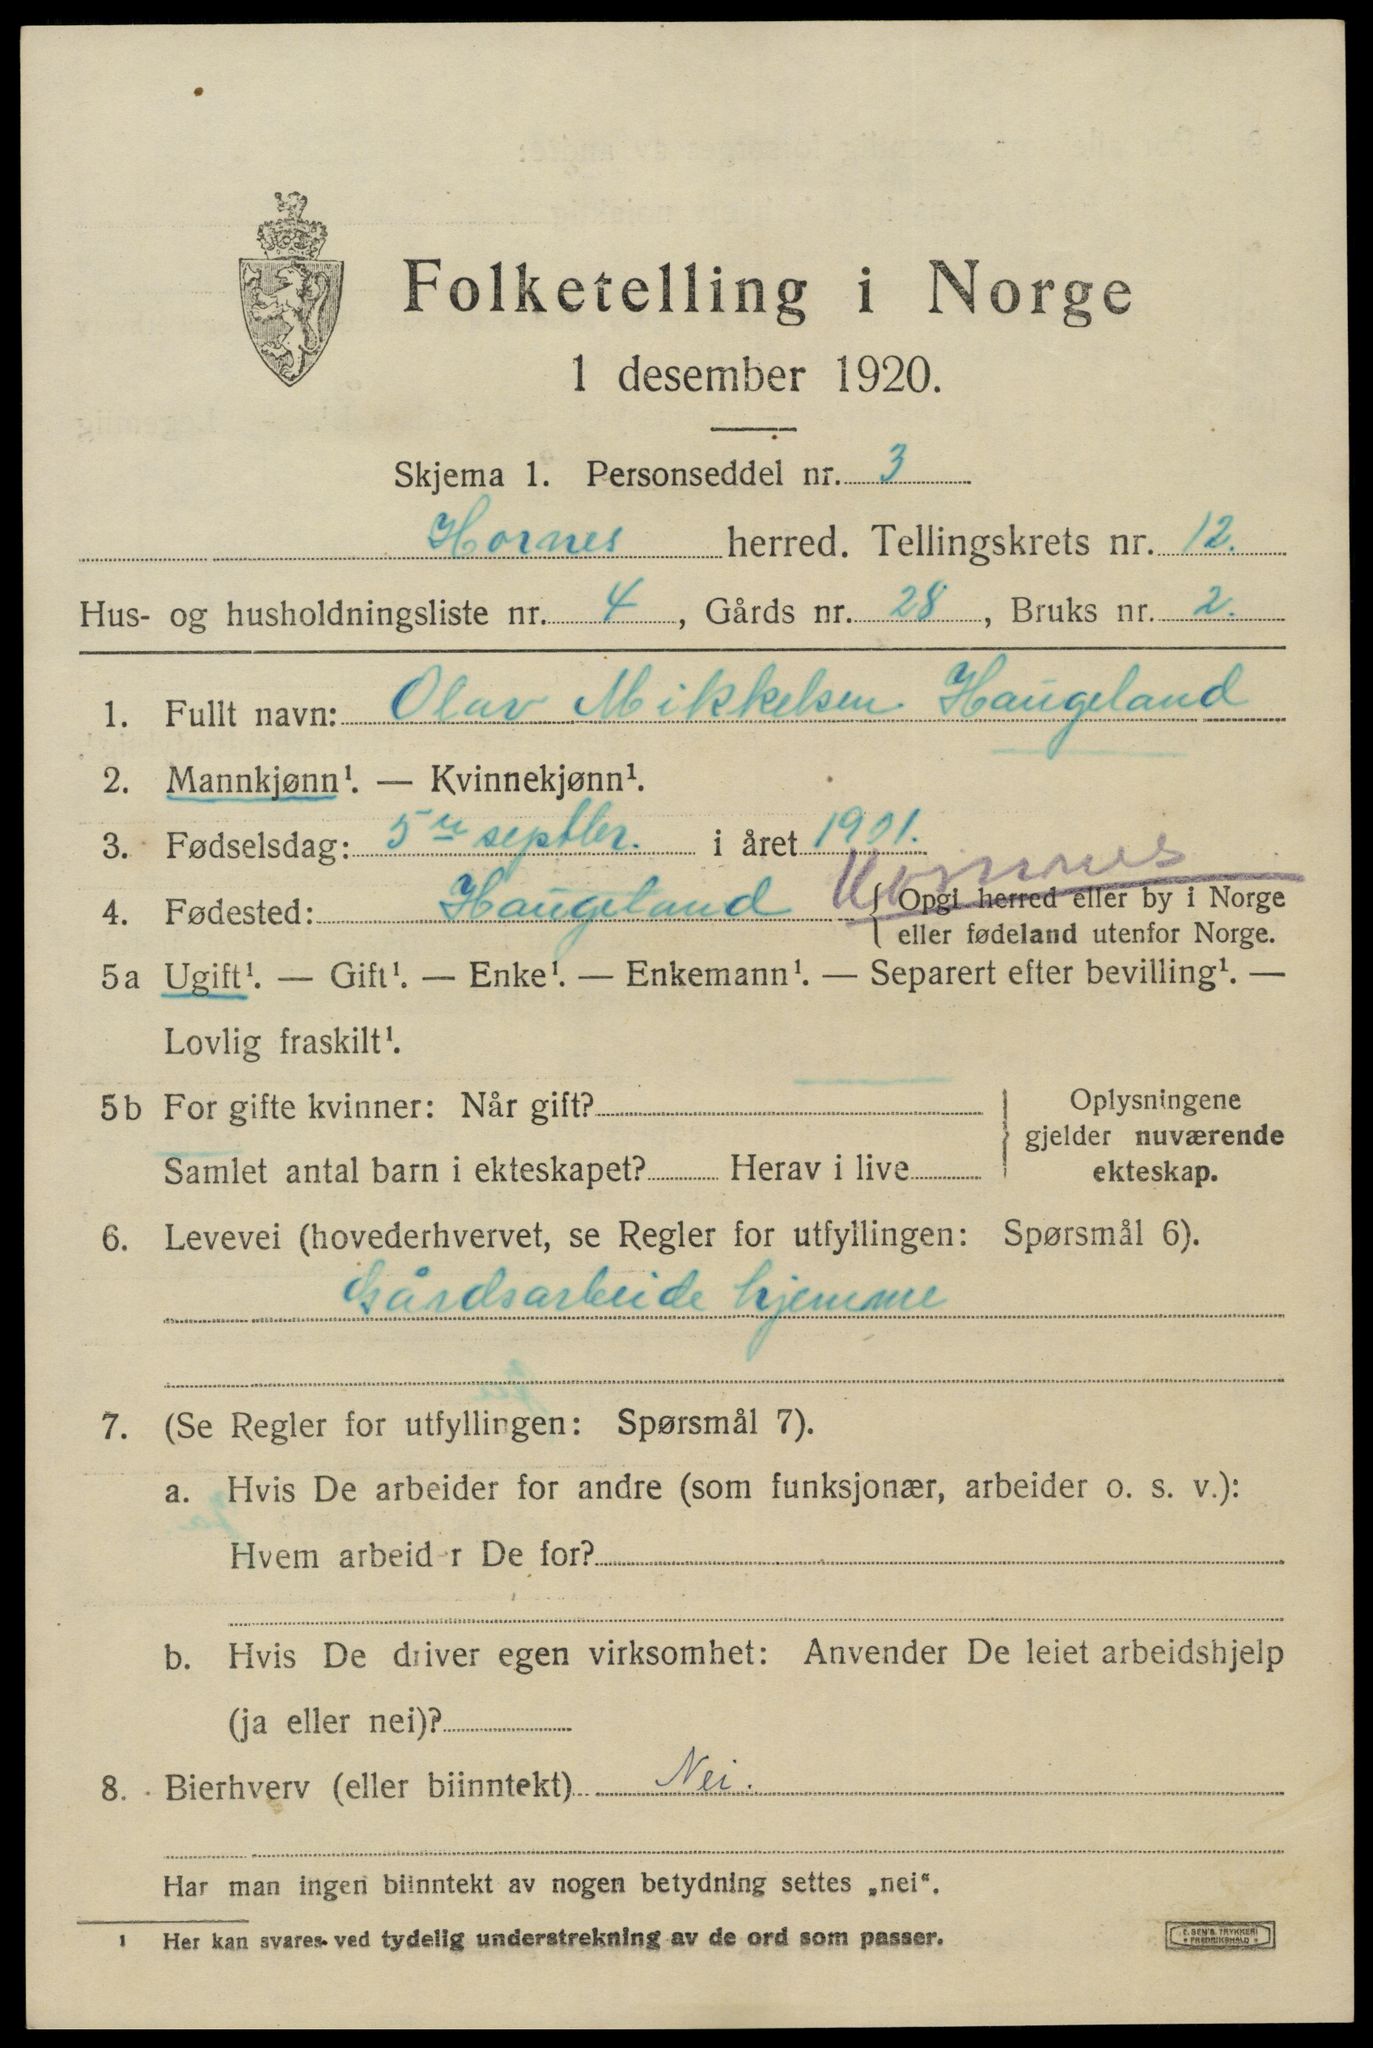 Folketelling i Norge
1 desember 1920.
Skjema 1. Personseddel nr. 3
Hornes herred. Tellingskrets nr. 12.
Hus- og husholdningsliste nr. 4, Gårds nr. 28, Bruks nr. 2.
1. Fullt navn: Olav Mikkelsen Haugeland
2. Mannkjønn¹. — Kvinnekjønn¹.
3. Fødselsdag: 5te septbr. i året 1901.
Hornnes
4. Fødested: Haugeland { Opgi herred eller by i Norge
eller fødeland utenfor Norge.
5a Ugift¹. — Gift¹. — Enke¹. — Enkemann¹. — Separert efter bevilling¹. —
Lovlig fraskilt¹.
5b For gifte kvinner: Når gift?
Samlet antal barn i ekteskapet? Herav i live
Oplysningene
gjelder nuværende
ekteskap.
6. Levevei (hovederhvervet, se Regler for utfyllingen: Spørsmål 6).
Gårdsarbeide hjemme
7. (Se Regler for utfyllingen: Spørsmål 7).
a. Hvis De arbeider for andre (som funksjonær, arbeider o. s. v.):
Hvem arbeid r De for?
b. Hvis De driver egen virksomhet: Anvender De leiet arbeidshjelp
(ja eller nei)?
8. Bierhverv (eller biinntekt) Nei.
Har man ingen biinntekt av nogen betydning settes „nei“.
1 Her kan svares ved tydelig understrekning av de ord som passer.
TRYKKERI
FREDRIKSHALD